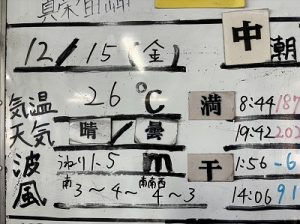 12/15(金) 中 朝
気温 26℃ 満 8:44 187
天気 晴/曇 19:42 203
波 うねり1.5m 干 1:56 -6
風 南3~4~南南西4~3 14:06 91